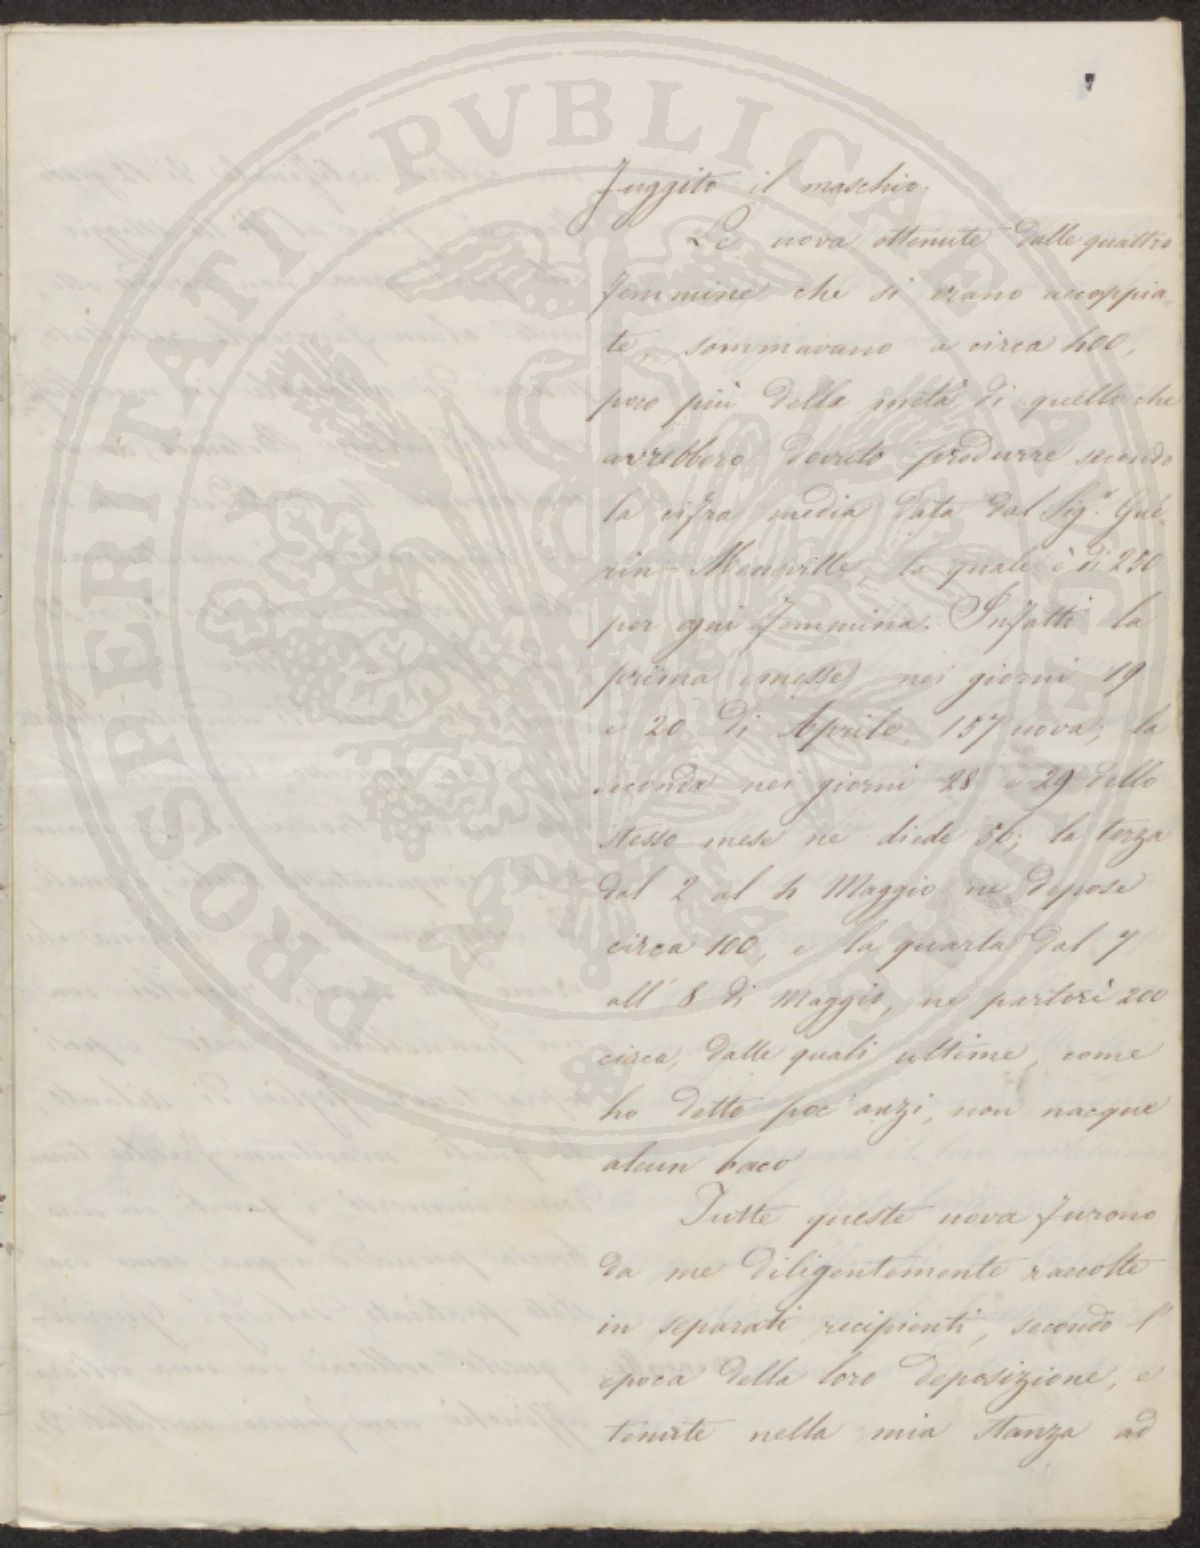 fuggito il maschio.
Le uova ottenute dalle quattro
femmine che si erano accoppia-
te, sommavano a circa 400,
poco più della metà di quello che
avrebbero dovuto produrre secondo
la cifra media data dal Sig.r Gué-
rin-Menéville, la quale è di 250
per ogni femmina. Infatti la
prima emesse nei giorni 19
e 20 di Aprile, 157 uova; la
seconda nei giorni 28 e 29 dello
stesso mese ne diede 56; la terza
dal 2 al 4 Maggio ne depose
circa 100, e la quarta dal 7
all' 8 di Maggio, ne partorì 200
circa, dalle quali ultime, come
ho detto poc'anzi, non nacque
alcun baco
Tutte queste uova furono
da me diligentemente raccolte
in separati recipienti, secondo l'
epoca della loro deposizione, e
tenute nella mia stanza ad
PROSPERITATI PVBLICAE